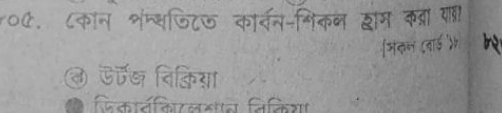 ০৫. কোন পদ্ধতিতে কার্বন-শিকল হ্রাস করা যায়
[সকল বোর্ড
উর্টজ বিক্রিয়া
ডিকার্বক্সিলেশন বিক্রিয়া